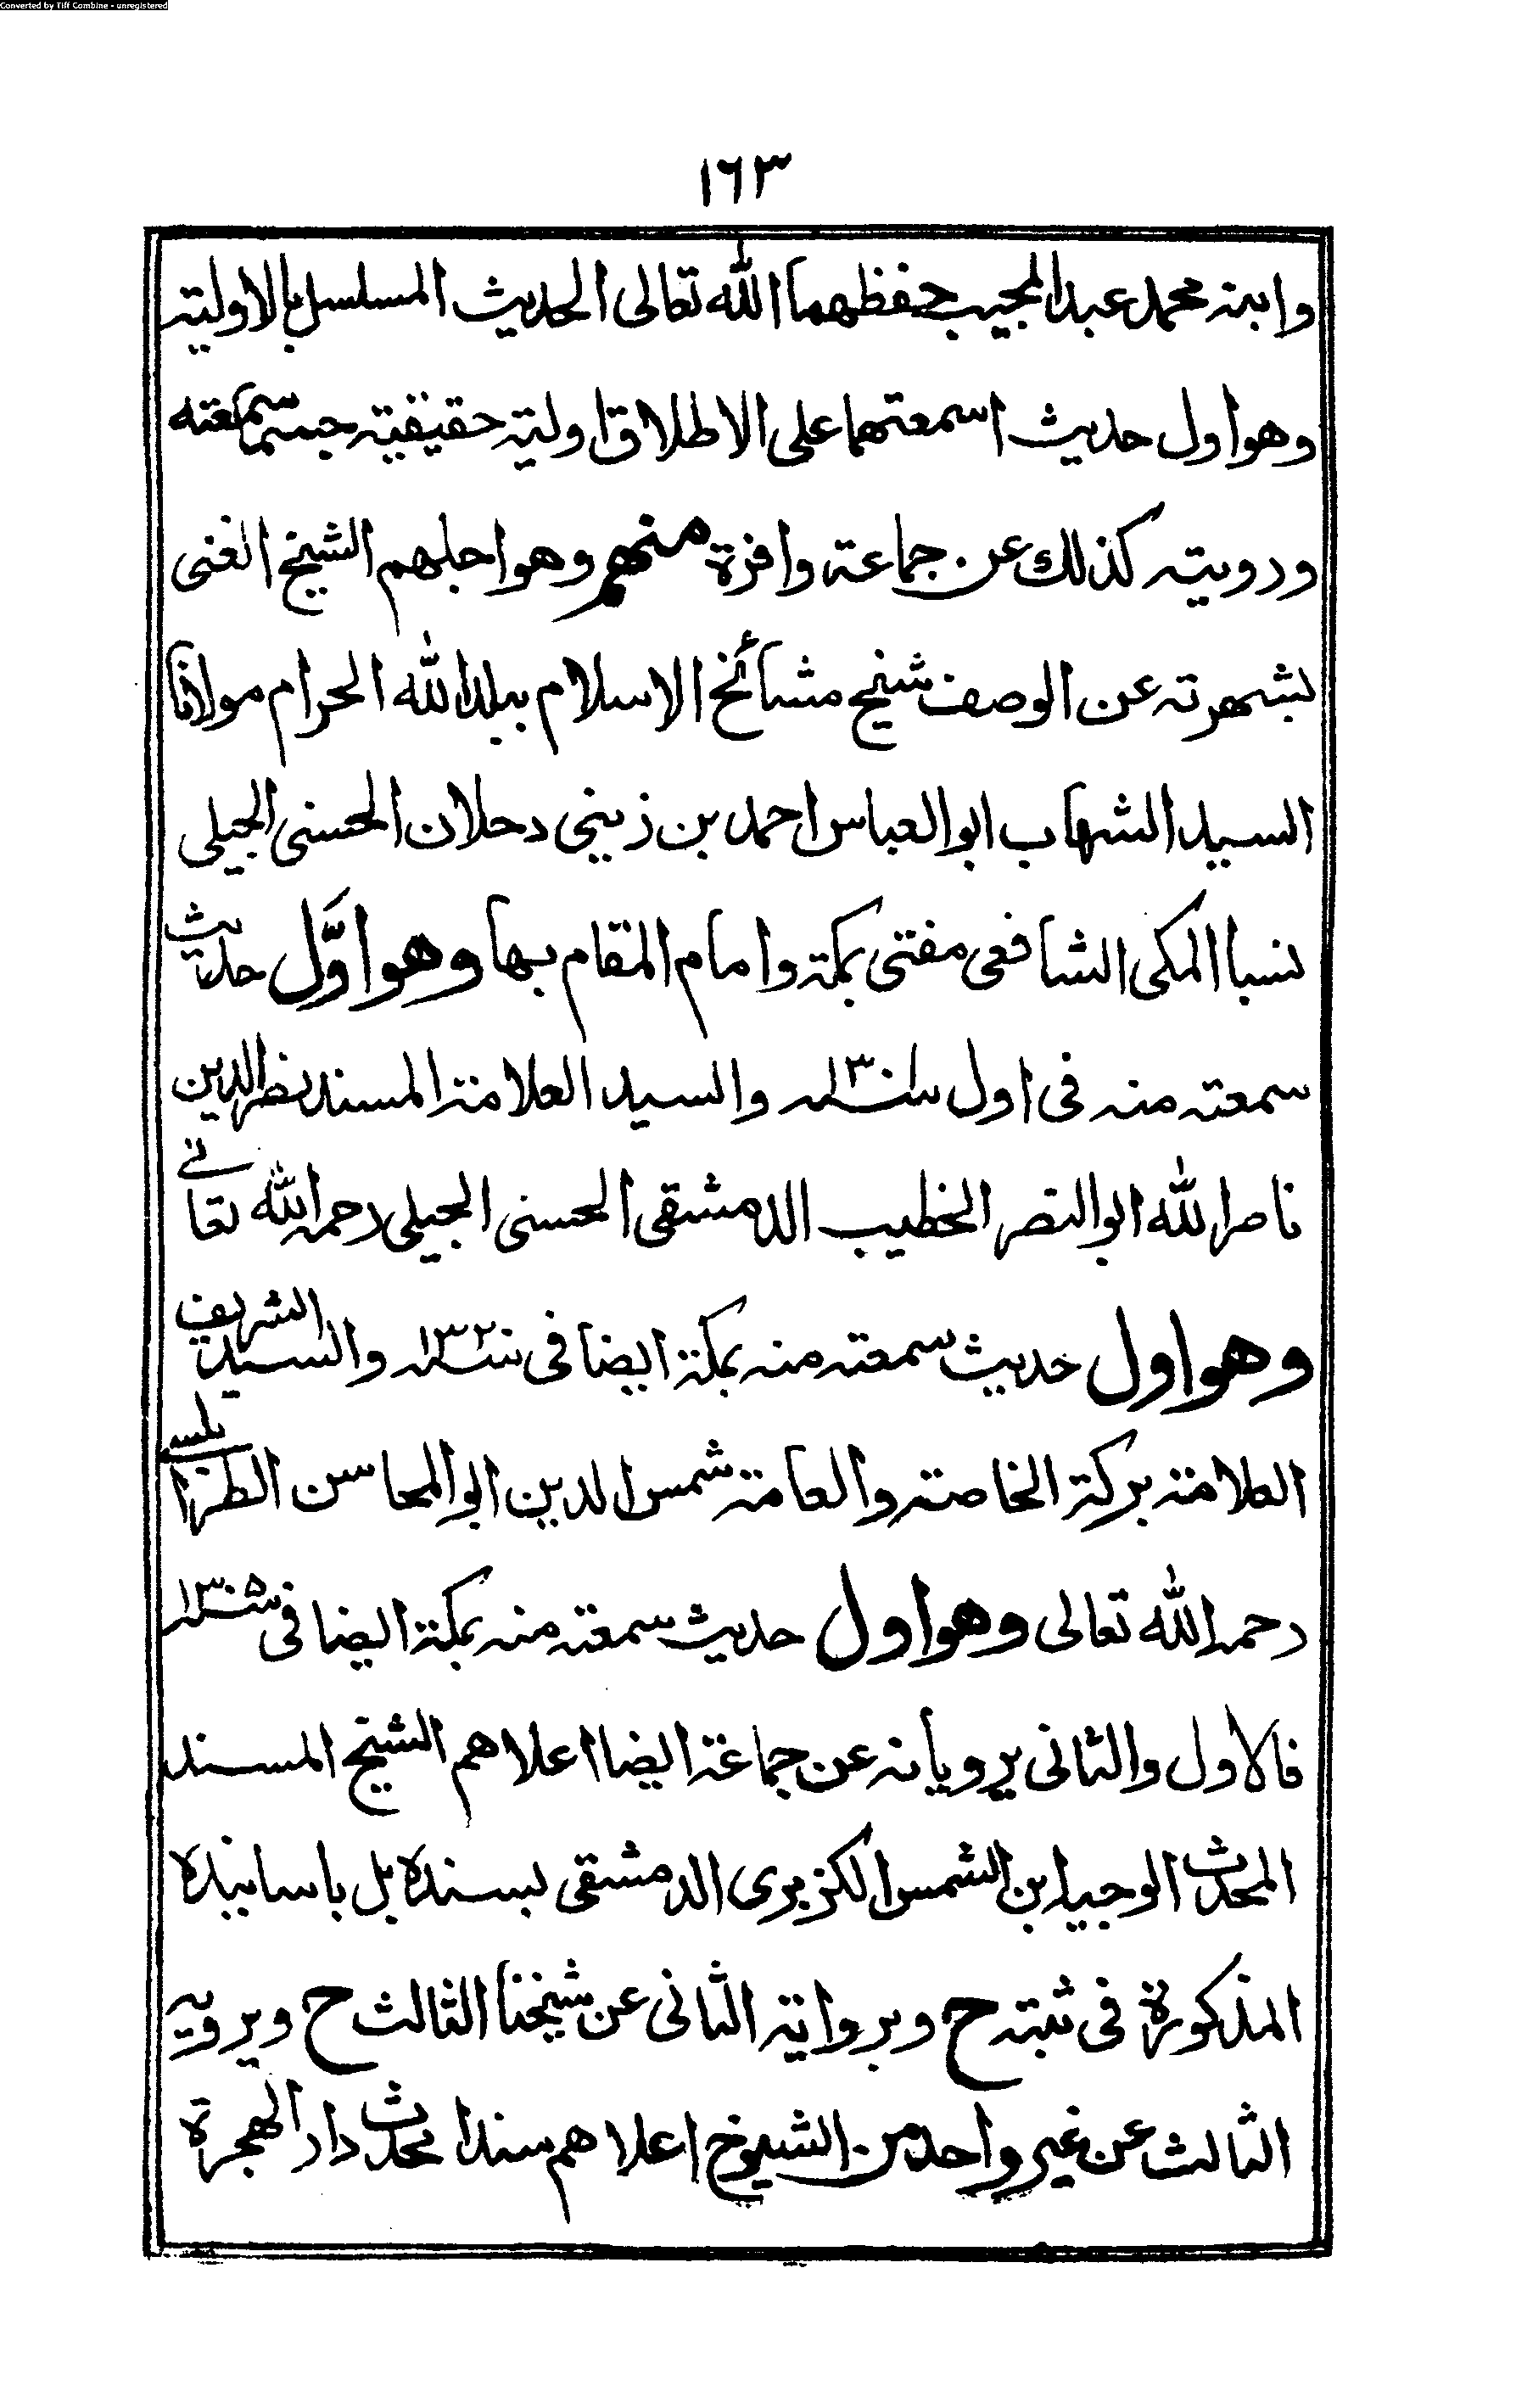 Converted by Tiff Combine - unregistered
١٦٣
وابنه محمد عبدالمجيب حفظهما الله تعالى الحديث المسلسل بالاولية
وهو اول حديث اسمعتهما على الاطلاق اولية حقيقية حسبما سمعته
ورويته كذلك عن جماعة وافرة منهم وهو اجلهم الشيخ الغنى
بشهرته عن الوصف شيخ مشائخ الاسلام ببلد الله الحرام مولانا
السيد الشهاب ابو العباس احمد بن زينى دحلان الحسنى الجيلى
نسبا المكى الشافعى مفتى بمكة وامام المقام بها وهو اوّل حديث
سمعته منه فى اول سنة والسيد العلامة المسند نصر الدين
ناصر الله ابو النصر الخطيب الدمشقى الحسنى الجيلى رحمه الله تعالى
وهو اول حديث سمعته منه بمكة ايضا فى سنة والسيد الشريف
العلامة بركة الخاصة والعامة شمس الدين ابو المحاسن الطرابلسى
رحمه الله تعالى وهو اول حديث سمعته منه بمكة ايضا فى سنة ١٣٠٥
فالاول والثانى يرويأنه عن جماعة ايضا اعلاهم الشيخ المسند
المحدث الوجيه ابن الشمس الكزبرى الدمشقى بسنده بل باسانيده
المذكورة فى ثبته ح وبرواية الثانى عن شيخنا الثالث ح ويرويه
الثالث عن غير واحد من الشيوخ اعلاهم سندا محدث دار الهجرة